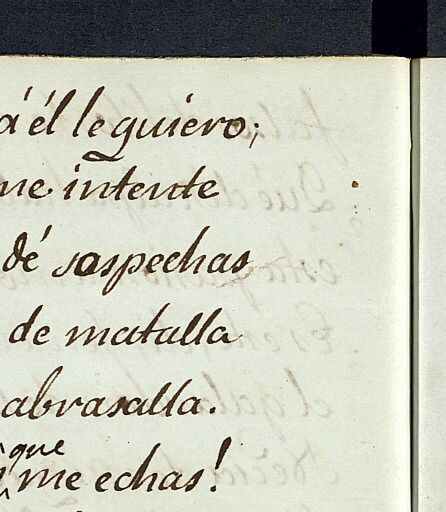 á él le quiero;
me intente
dé sospechas
de matalla
abrasalla.
que
me echas!